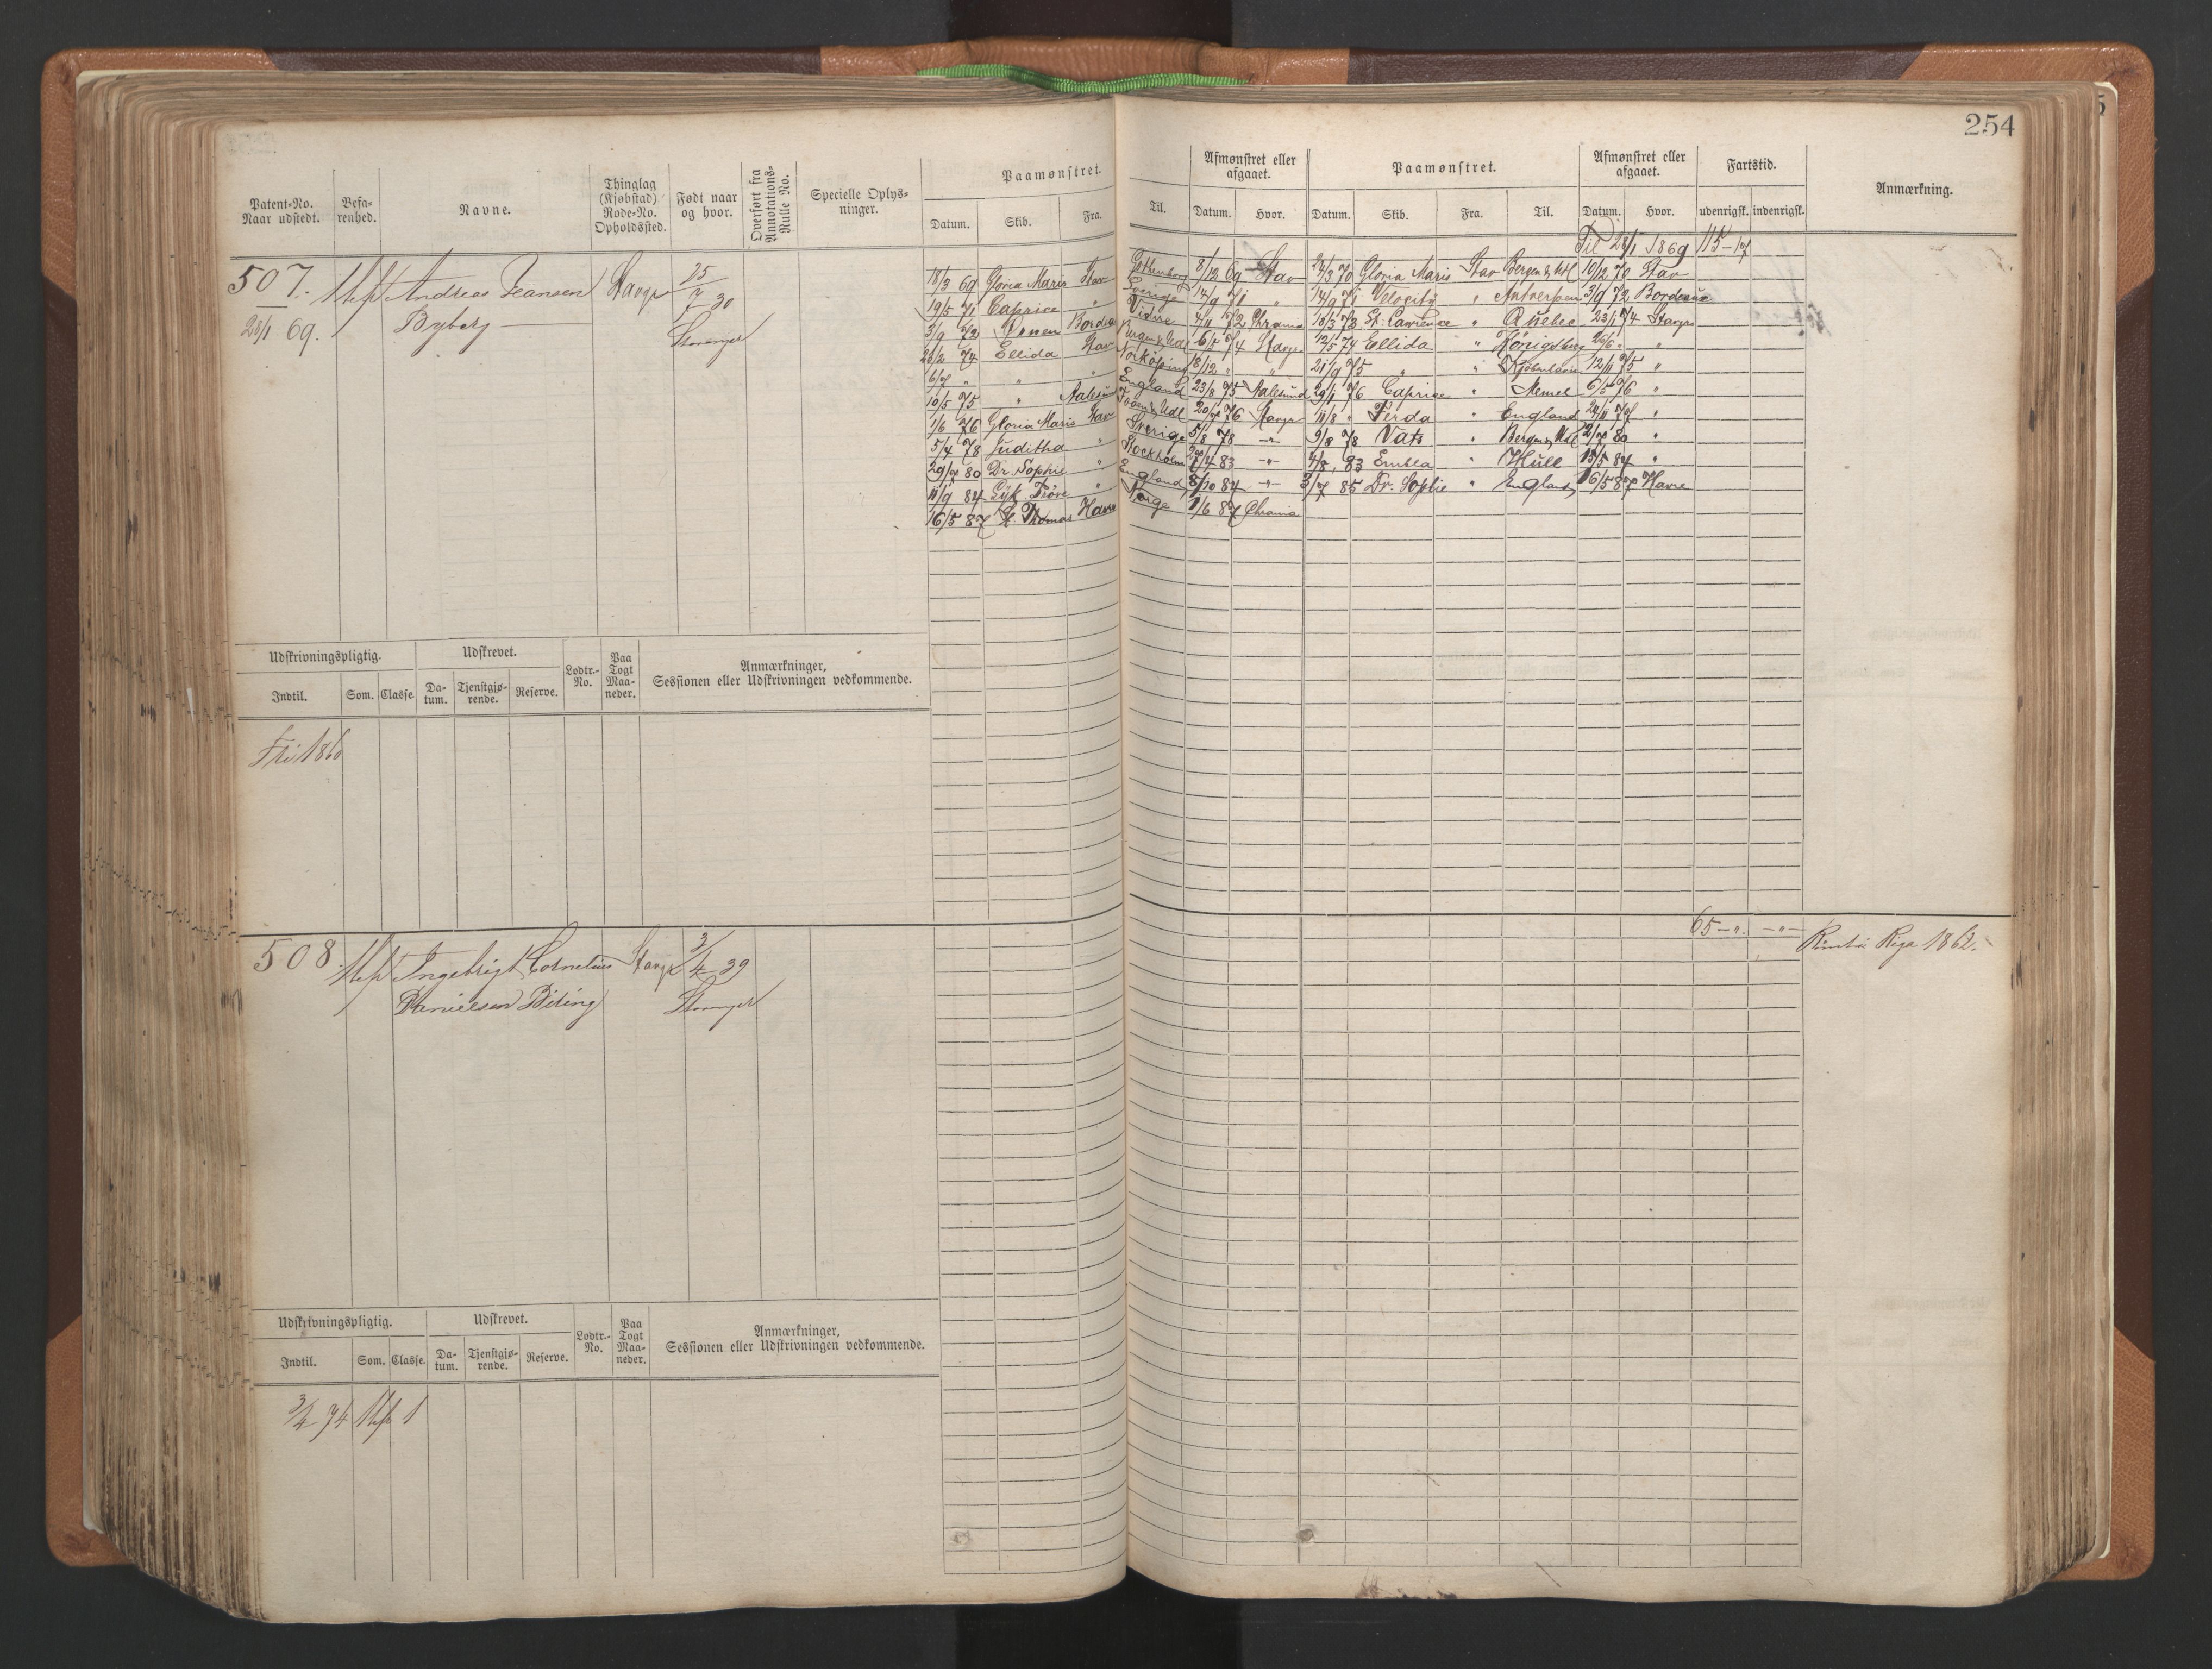 254
Patent-No. Naar udstedt. Befa-renhed. Navne. Thinglag (Kjøbstad) Rode-No. Opholdssted. Født naar og hvor. Overført fra Annotations-Rulle No. Specielle Oplys-ninger. Paamønstret. Afmønstret eller afgaaet. Paamønstret. Afmønstret eller afgaaet. Fartstid. Anmærkning.
Datum. Skib. Fra. Til. Datum. Hvor. Datum. Skib. Fra. Til. Datum. Hvor. udenrigsk. indenrigsk.
Til 28/1 1869 115
507. Andreas Jeansen Stavgr 25/7 30
28/1 69. Byberg Stavanger
18/3 69 Gloria Maris Stav Gothenborg 8/12 69 Stav 24/3 70 Gloria Maris Stav Bergen & Udl 10/12 70 Stav
19/5 71 Caprice " Sverige 14/9 71 " 14/9 71 Velocity " Antverpen 3/9 72 Bordeaux
3/9 72 Bordea 4/11 72 Chrania 18/3 73 St. Lawrence " Quebec 23/1 74 Stavgr
26/2 74 Ellida Stav Bergen & Udl 6/5 74 Stavgr 12/5 74 Ellida " Königsberg 26/6 " "
6/7 " " " Norköping 18/12 " " 21/9 75 " " Kjøbenhavn 12/11 75 "
10/5 75 " Aalesund England 23/8 75 Aalesund 29/1 76 Caprice " Memel 6/5 76 "
1/6 76 Gloria Maris Stav 20/7 76 Stavgr 11/8 " Ferda " England 24/11 77 "
5/4 78 Juditha " Sverige 5/8 78 -"- 9/8 78 Vats " Bergen & Udl 2/7 80 "
29/7 80 Dr. Sophie " Stockholm 27/4 83 -"- 4/8 83 Embla " Hull 15/5 84 "
11/9 84 " England 8/10 84 -"- 3/7 85 Dr. Sophie " England 16/5 87 Havre
16/5 87 St Thomas Havre Norge 1/6 87 Chrania
Udskrivningspligtig. Udskrevet. Lodtr.-No. Paa Togt Maa-neder. Anmærkninger, Sessionen eller Udskrivningen vedkommende.
Indtil. Som. Classe. Da-tum. Tjenstgjø-rende. Reserve.
Fri 1860
508. Ingebrigt Cornelius Stavgr 3/4 39 65 -"- -"- Riga 1862.
Danielsen Stavanger
Udskrivningspligtig. Udskrevet. Lodtr.-No. Paa Togt Maa-neder. Anmærkninger, Sessionen eller Udskrivningen vedkommende.
Indtil. Som. Classe. Da-tum. Tjenstgjø-rende. Reserve.
3/4 74 1